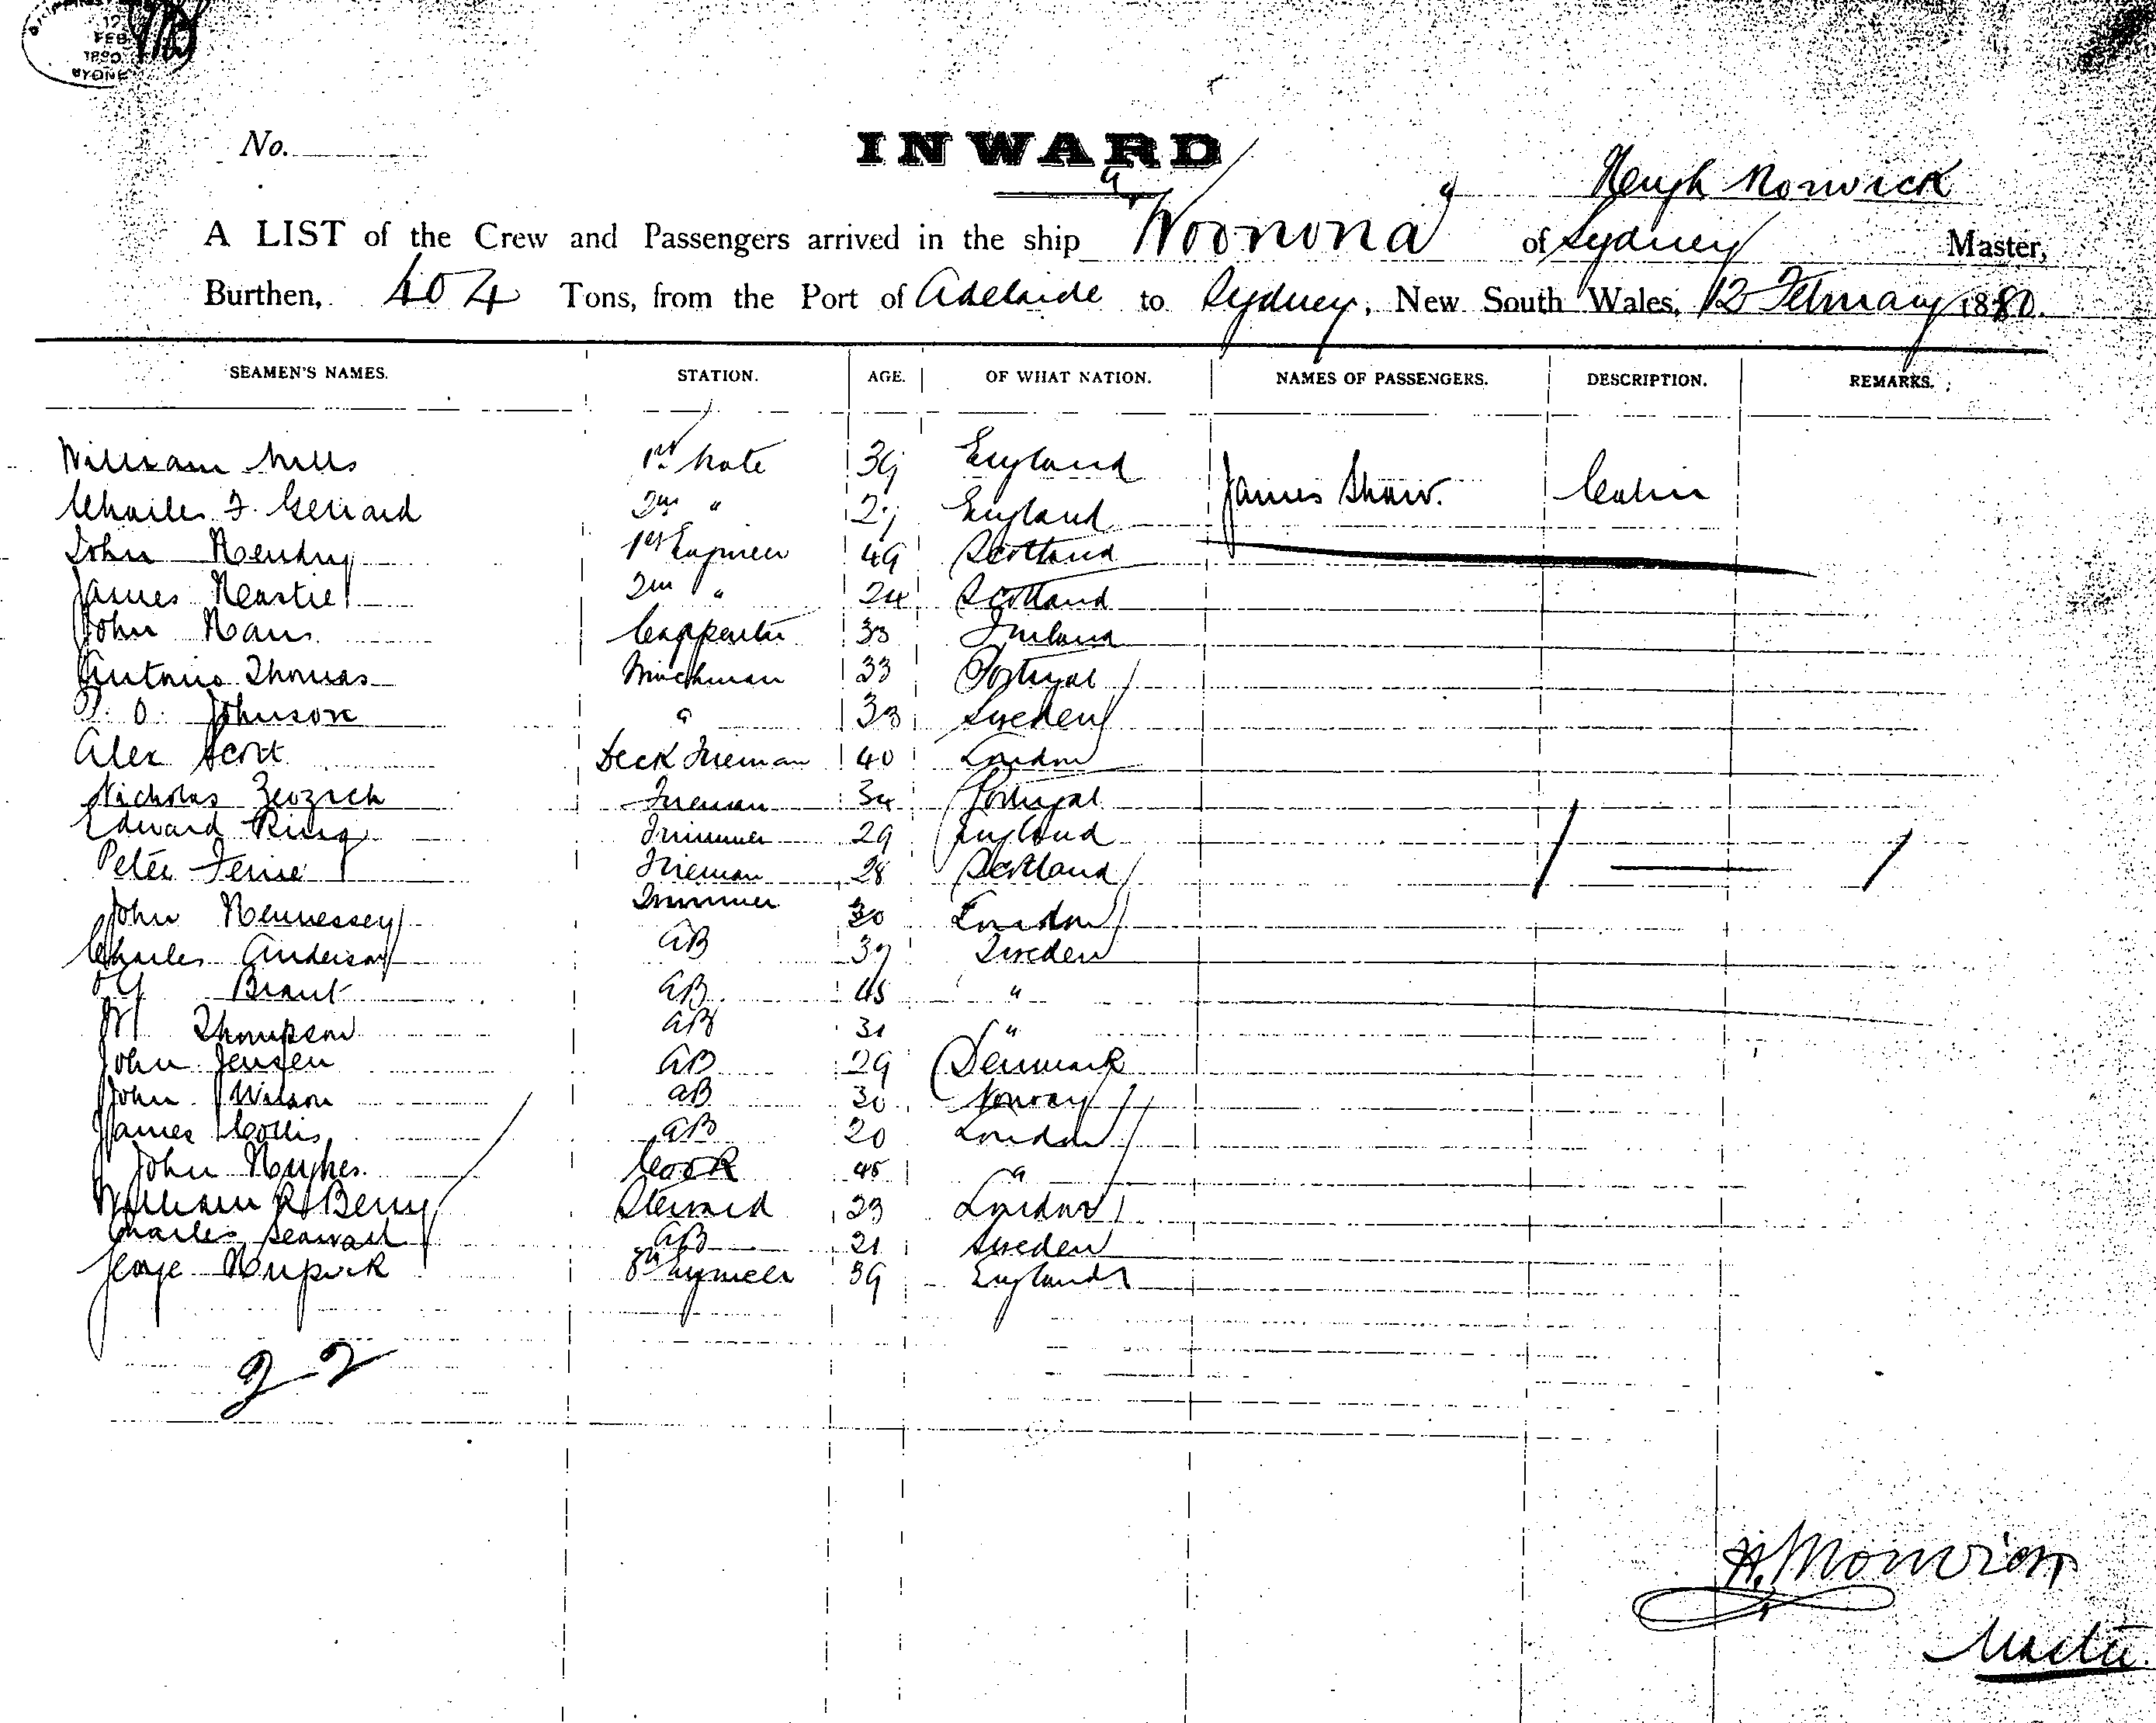 12
FEB
1880
No.
INWARD
Hugh Monwick
A LIST of the Crew and Passengers arrived in the ship "Woonona" of Sydney Master,
Burthen, 404 Tons, from the Port of Adelaide to Sydney, New South Wales, 12 February 1880.
SEAMEN'S NAMES. STATION. AGE. OF WHAT NATION. NAMES OF PASSENGERS. DESCRIPTION. REMARKS.
William Mills 1st Mate 39 England
Charles F. Gerrard 2nd " 2 England James Shaw. Cabin
John Hendry 1st Engineer 49 Scotland
James Heastie 2nd " 24 Scotland
John Carpenter 33
Antonio Thomas Winchman 33 Portugal
P. O. Johnson " 33 Sweden
Alex Scott Deck Fireman 40 London
Nicholas Fireman 34 Portugal
Edward King Trimmer 29 England
Peter Fireman 28 Scotland
John Hennessey Trimmer 30 London
Charles Anderson AB 37 Sweden
Brant AB 45 "
Thompson AB 31 "
John Jensen AB 29 Denmark
John Wilson AB 30 Norway
James Collis AB 20 London
John Hughes. Cook 45 "
William R Berry Steward 23 London
Charles AB 21 Sweden
George Engineer 39 England
22
H. Monwick
Master.